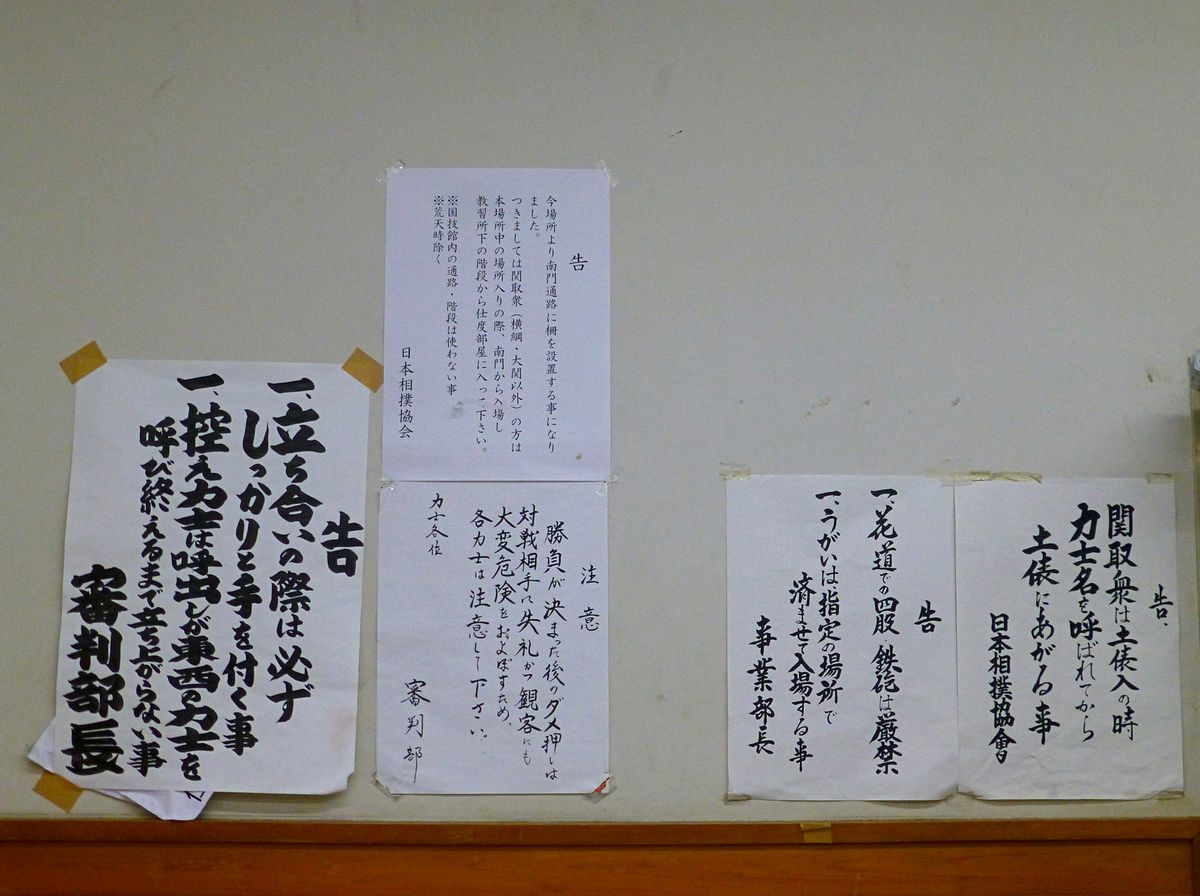 告
一、立ち合いの際は必ず
しっかりと手を付く事
一、控え力士は呼出しが東西の力士を
呼び終えるまで立ち上がらない事
審判部長
告
今場所より南門通路に柵を設置する事になり
ました。
つきましては関取衆（横綱・大関以外）の方は
本場所中の場所入りの際、南門から入場し
教習所下の階段から仕度部屋に入って下さい。
※国技館内の通路・階段は使わない事
※荒天時除く
日本相撲協会
注意
勝負が決まった後のダメ押しは
対戦相手に失礼かつ観客にも
大変危険をおよぼすため、
各力士は注意して下さい。
審判部
力士各位
告
一、花道での四股・鉄砲は厳禁
一、うがいは指定の場所で
済ませて入場する事
事業部長
告
関取衆は土俵入の時
力士名を呼ばれてから
土俵にあがる事
日本相撲協會